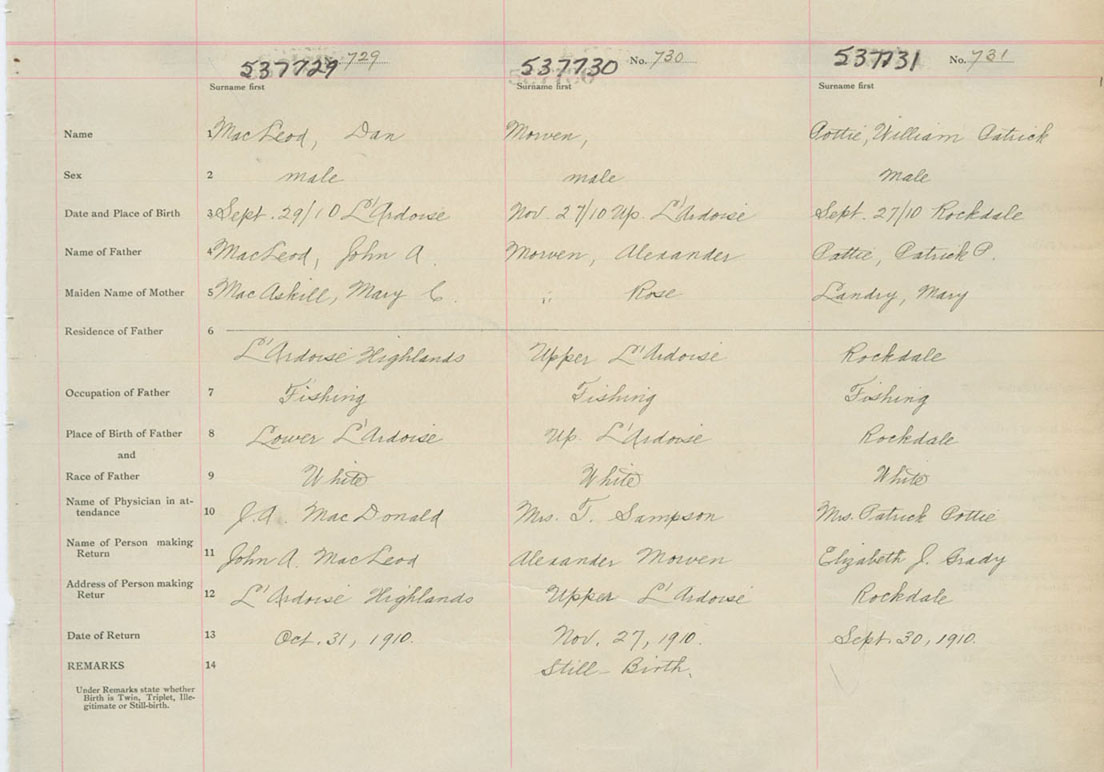 537729 729 537730 No. 730 537731 No. 731
Surname first Surname first Surname first
Name 1 MacLeod, Dan Mowen, Pottie, William Patrick
Sex 2 male male Male
Date and Place of Birth 3 Sept. 29/10 L'Ardoise Nov. 27/10 Up. L'Ardoise Sept. 27/10 Rockdale
Name of Father 4 MacLeod, John A. Mowen, Alexander Pottie, Patrick P.
Maiden Name of Mother 5 MacAskill, Mary C. " Rose Landry, Mary
Residence of Father 6
L'Ardoise Highlands Upper L'Ardoise Rockdale
Occupation of Father 7 Fishing Fishing Fishing
Place of Birth of Father 8 Lower L'Ardoise Up. L'Ardoise Rockdale
and
Race of Father 9 White White White
Name of Physician in at-
tendance 10 J.A. MacDonald Mrs. T. Sampson Mrs. Patrick Pottie
Name of Person making
Return 11 John A. MacLeod Alexander Mowen Elizabeth J. Grady
Address of Person making
Retur 12 L'Ardoise Highlands Upper L'Ardoise Rockdale
Date of Return 13 Oct. 31, 1910. Nov. 27, 1910. Sept. 30, 1910.
REMARKS 14 Still-Birth.
Under Remarks state whether
Birth is Twin, Triplet, Ille-
gitimate or Still-birth.